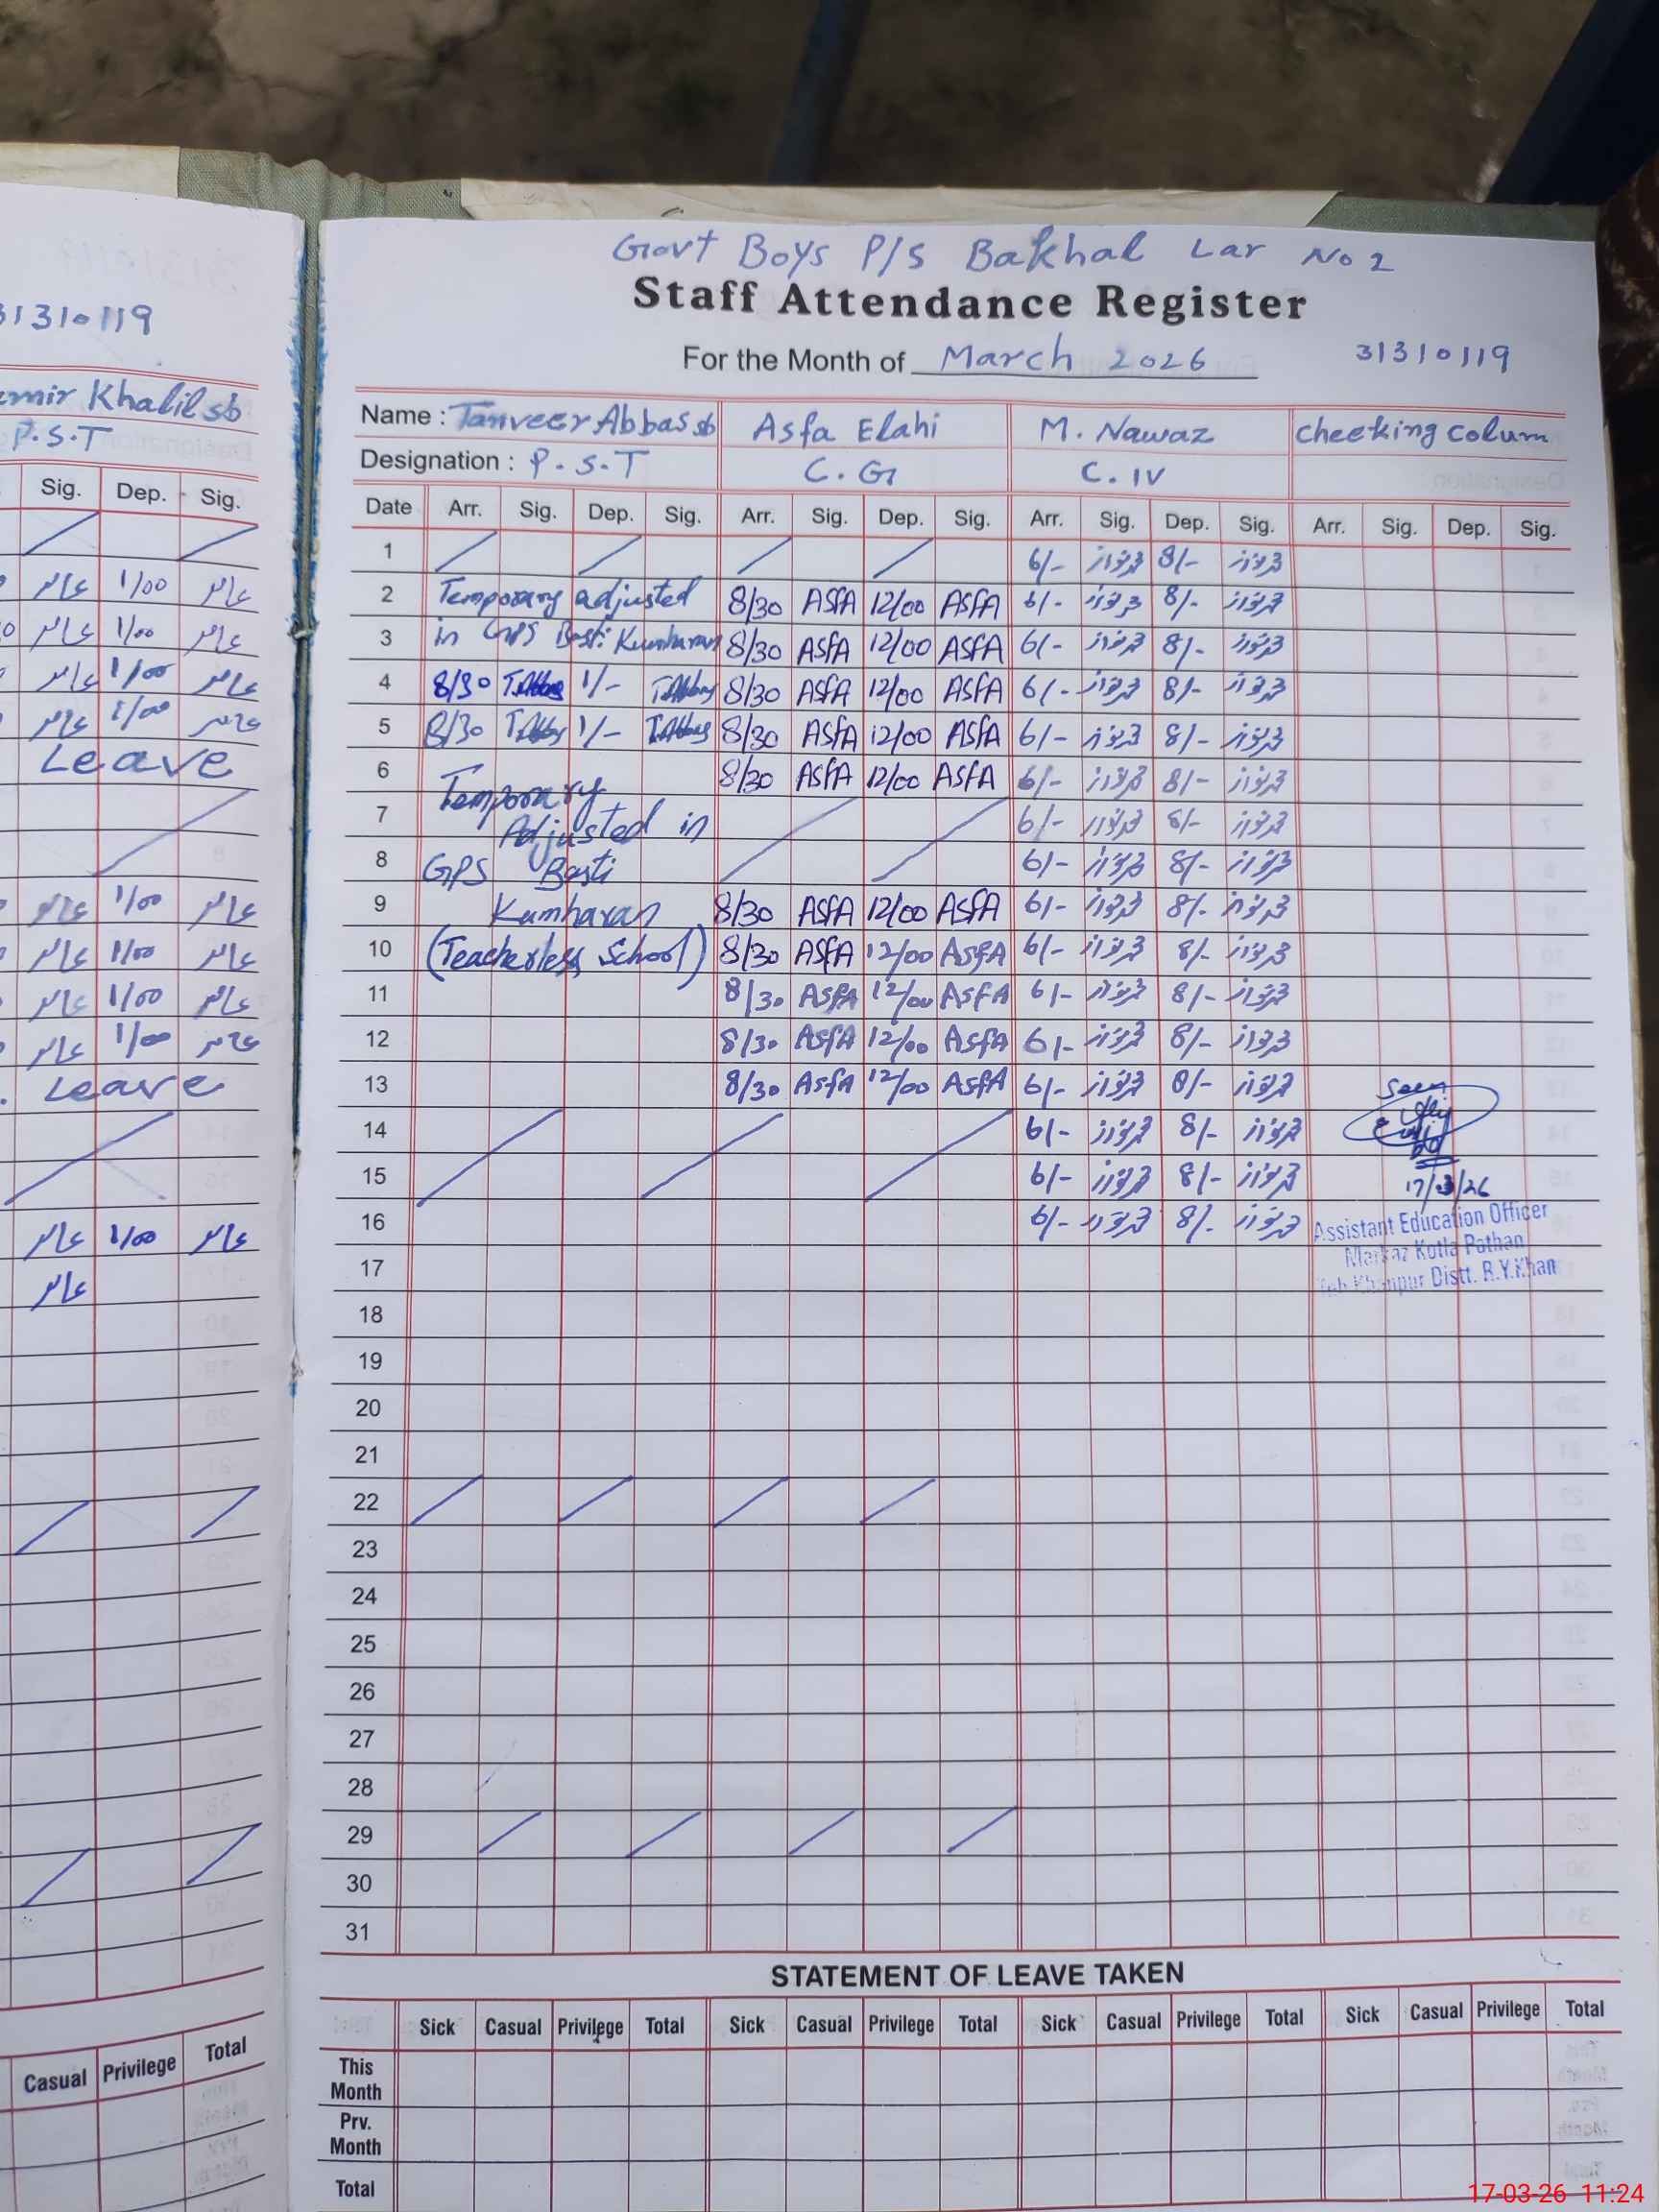 31310119
emir Khalil sb
P.S.T
Sig. Dep. Sig.
عامر 1/00 عامر
عامر 1/00 عامر
عامر 1/00 عامر
عامر 1/00 عامر
Leave
عامر 1/00 عامر
عامر 1/00 عامر
عامر 1/00 عامر
عامر 1/00 عامر
Leave
عامر 1/00 عامر
عامر
Casual Privilege Total
Govt Boys P/S Bakhal Lar No 2
Staff Attendance Register
For the Month of March 2026 31310119
Name : Tanveer Abbas sb Asfa Elahi M. Nawaz Cheeking Colum
Designation : P.S.T C.GI C.IV
Date Arr. Sig. Dep. Sig. Arr. Sig. Dep. Sig. Arr. Sig. Dep. Sig. Arr. Sig. Dep. Sig.
1 6/- محمد نواز 8/- محمد نواز
2 Temporary adjusted 8/30 ASFA 12/00 ASFA 6/- محمد نواز 8/- محمد نواز
3 in GPS Basti Kumharan 8/30 ASFA 12/00 ASFA 6/- محمد نواز 8/- محمد نواز
4 8/30 T.Abbas 1/- T.Abbas 8/30 ASFA 12/00 ASFA 6/- محمد نواز 8/- محمد نواز
5 8/30 T.Abbas 1/- T.Abbas 8/30 ASFA 12/00 ASFA 6/- محمد نواز 8/- محمد نواز
6 Temporary 8/30 ASFA 12/00 ASFA 6/- محمد نواز 8/- محمد نواز
7 Adjusted in 6/- محمد نواز 8/- محمد نواز
8 GPS Basti 6/- محمد نواز 8/- محمد نواز
9 Kumharan 8/30 ASFA 12/00 ASFA 6/- محمد نواز 8/- محمد نواز
10 (Teacherless School) 8/30 ASFA 12/00 ASFA 6/- محمد نواز 8/- محمد نواز
11 8/30 ASFA 12/00 ASFA 6/- محمد نواز 8/- محمد نواز
12 8/30 ASFA 12/00 ASFA 6/- محمد نواز 8/- محمد نواز
13 8/30 ASFA 12/00 ASFA 6/- محمد نواز 8/- محمد نواز
Seen
14 6/- محمد نواز 8/- محمد نواز
15 6/- محمد نواز 8/- محمد نواز
17/3/26
16 6/- محمد نواز 8/- محمد نواز
Assistant Education Officer
Markaz Kotla Pathan
Teh Khanpur Distt. R.Y.Khan
17
18
19
20
21
22
23
24
25
26
27
28
29
30
31
STATEMENT OF LEAVE TAKEN
Sick Casual Privilege Total Sick Casual Privilege Total Sick Casual Privilege Total Sick Casual Privilege Total
This Month
Prv. Month
Total
17-03-26 11:24